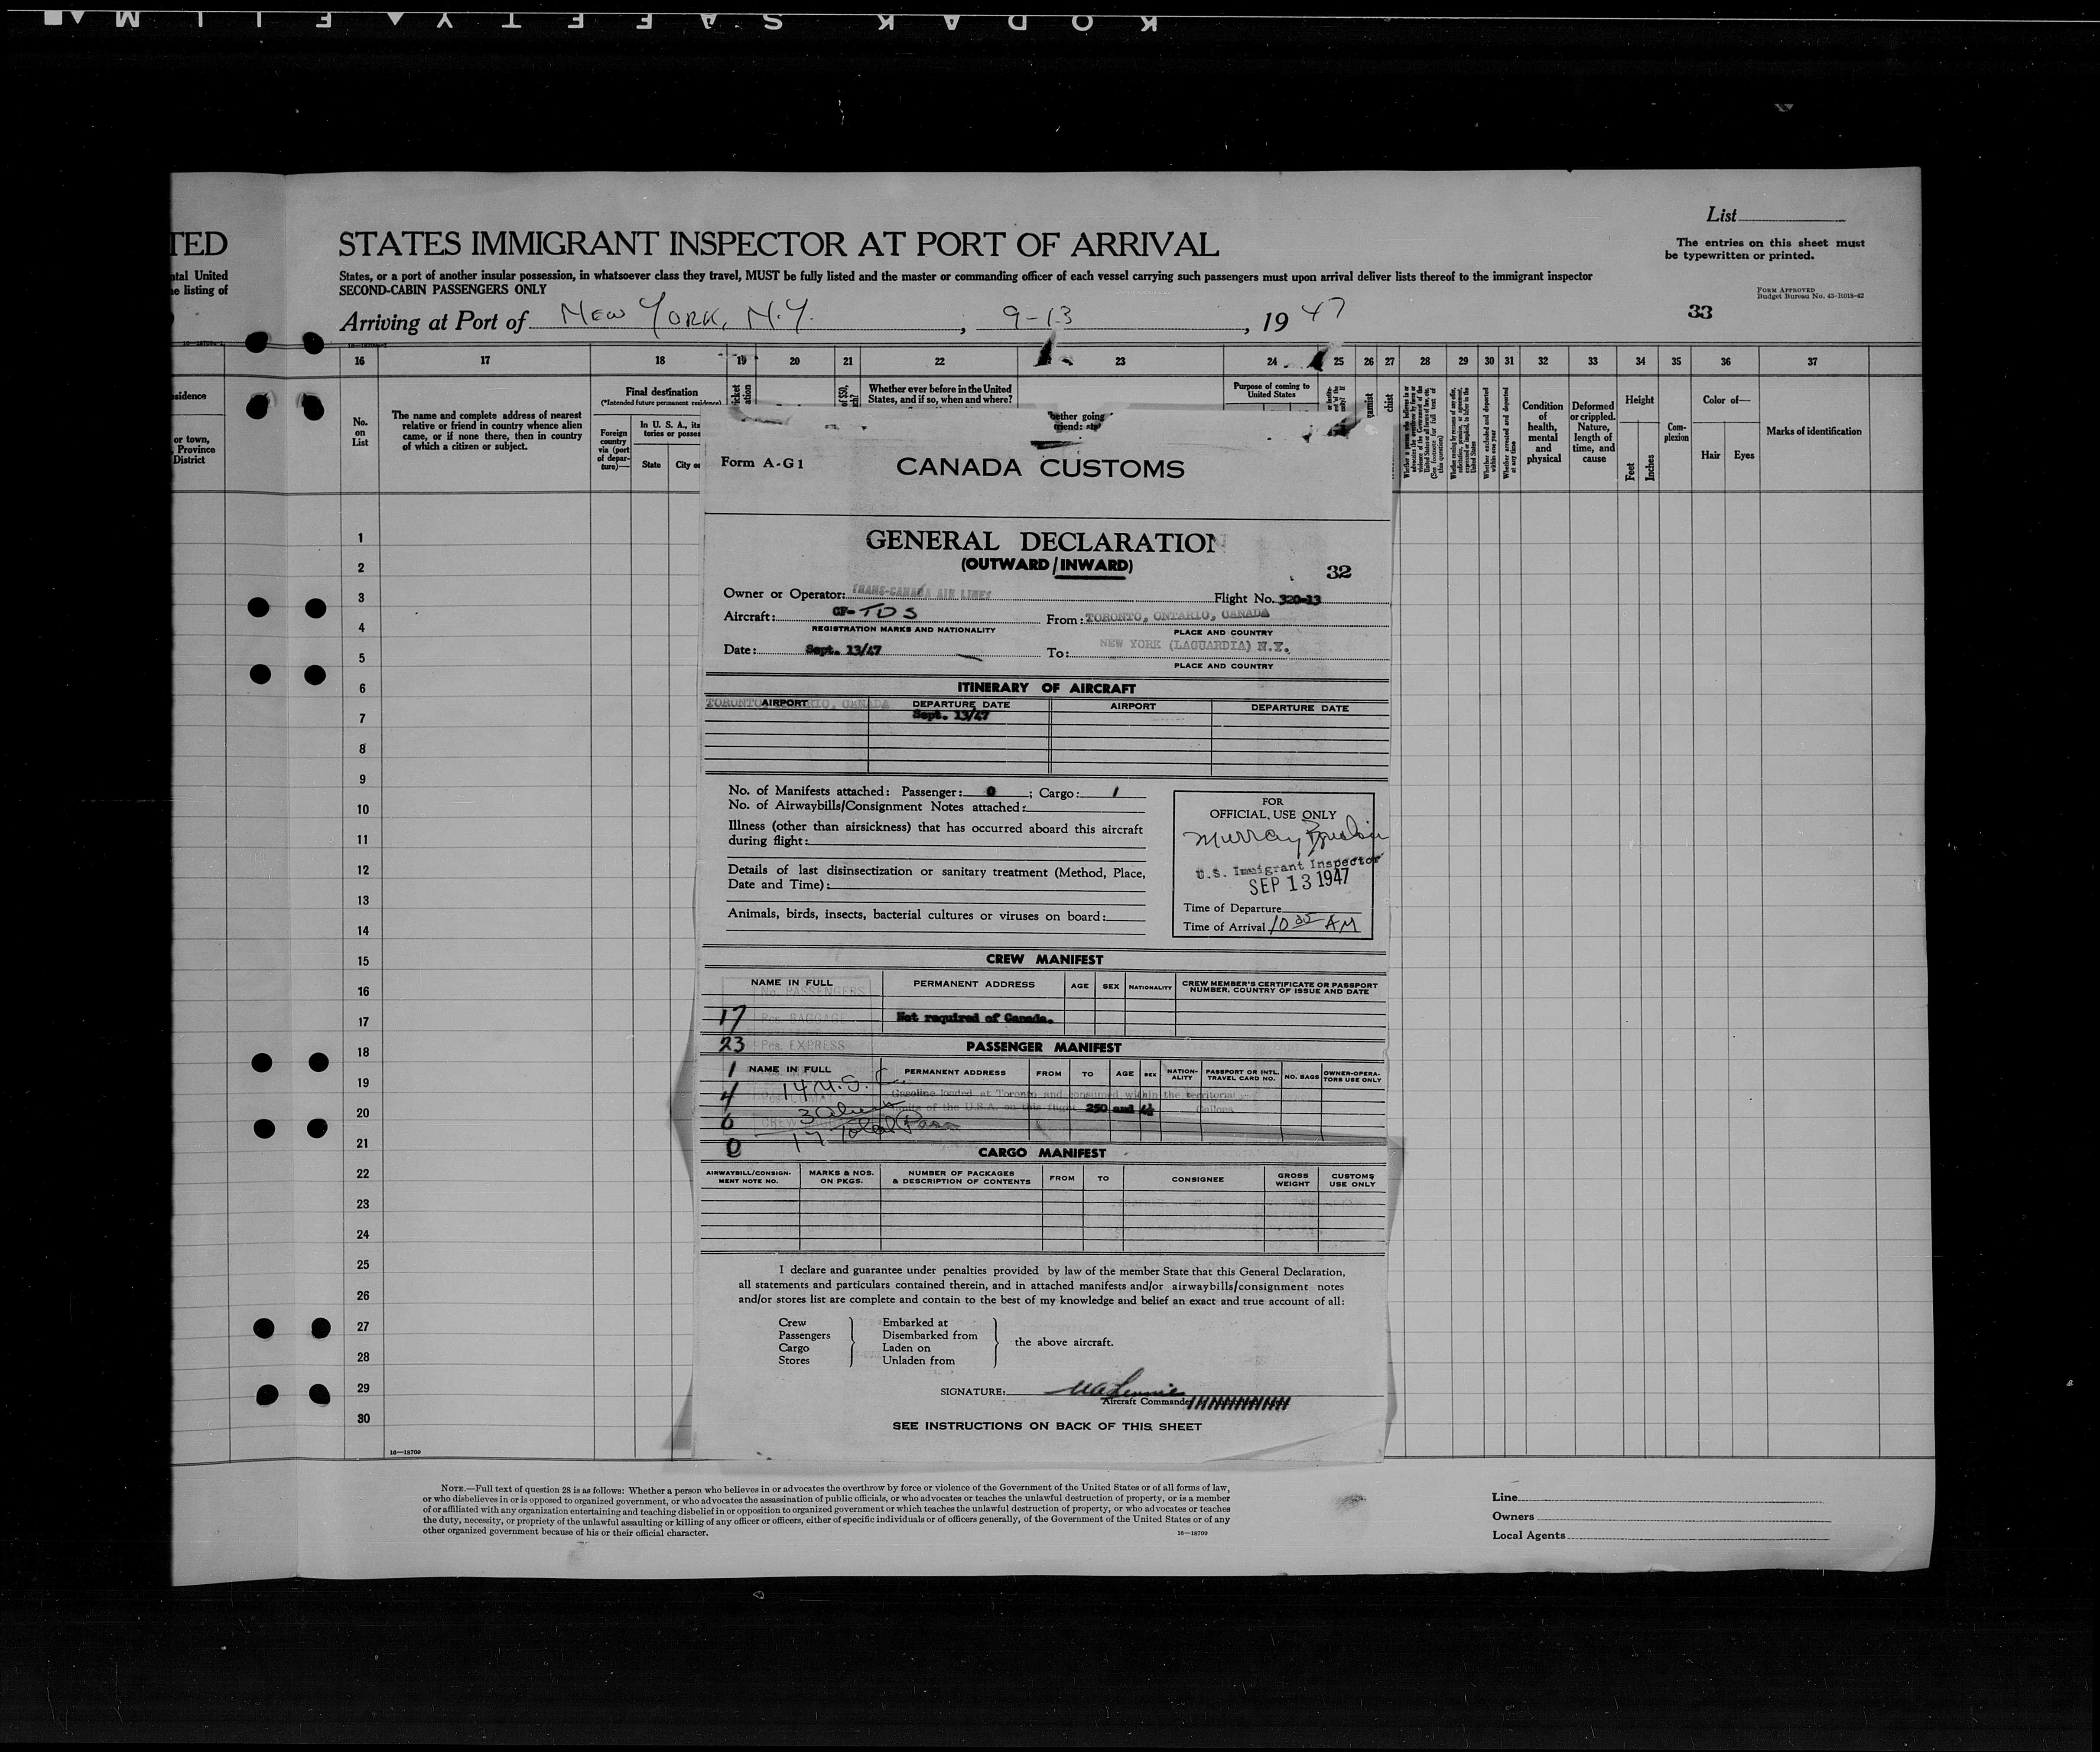 KODAK SAFETY FILM
List
TED
STATES IMMIGRANT INSPECTOR AT PORT OF ARRIVAL
The entries on this sheet must
be typewritten or printed.
ntal United
e listing of
States, or a port of another insular possession, in whatsoever class they travel, MUST be fully listed and the master or commanding officer of each vessel carrying such passengers must upon arrival deliver lists thereof to the immigrant inspector
SECOND-CABIN PASSENGERS ONLY
FORM APPROVED
Budget Bureau No. 43-R018-42
Arriving at Port of NEW YORK, N.Y. , 9-13 , 1947
33
16 17 18 19 20 21 22 23 24 25 26 27 28 29 30 31 32 33 34 35 36 37
sidence
or town,
Province
District
No.
on
List
The name and complete address of nearest
relative or friend in country whence alien
came, or if none there, then in country
of which a citizen or subject.
Final destination
(*Intended future permanent residence)
Foreign
country
via (port
of depar-
ture)—
In U. S. A., its
tories or posses
State
City or
Whether ever before in the United
States, and if so, when and where?
Purpose of coming to
United States
Condition
of
health,
mental
and
physical
Deformed
or crippled.
Nature,
length of
time, and
cause
Height
Feet
Inches
Com-
plexion
Color of—
Hair
Eyes
Marks of identification
Form A-G1
CANADA CUSTOMS
GENERAL DECLARATION
(OUTWARD/INWARD)
32
Owner or Operator: TRANS-CANADA AIR LINES Flight No. 320-13
Aircraft: CF-TDS From: TORONTO, ONTARIO, CANADA
REGISTRATION MARKS AND NATIONALITY PLACE AND COUNTRY
Date: Sept. 13/47 To: NEW YORK (LAGUARDIA) N.Y.
PLACE AND COUNTRY
ITINERARY OF AIRCRAFT
AIRPORT DEPARTURE DATE AIRPORT DEPARTURE DATE
TORONTO, ONTARIO, CANADA Sept. 13/47
No. of Manifests attached: Passenger: 0 ; Cargo: 1
No. of Airwaybills/Consignment Notes attached:
Illness (other than airsickness) that has occurred aboard this aircraft
during flight:
Details of last disinsectization or sanitary treatment (Method, Place,
Date and Time):
Animals, birds, insects, bacterial cultures or viruses on board:
FOR
OFFICIAL USE ONLY
Murray
U.S. Immigrant Inspector
SEP 13 1947
Time of Departure
Time of Arrival AM
CREW MANIFEST
NAME IN FULL PERMANENT ADDRESS AGE SEX NATIONALITY CREW MEMBER'S CERTIFICATE OR PASSPORT
NUMBER, COUNTRY OF ISSUE AND DATE
No. PASSENGERS
17 Pcs. BAGGAGE Not required of Canada.
23 Pcs. EXPRESS
PASSENGER MANIFEST
1 NAME IN FULL PERMANENT ADDRESS FROM TO AGE SEX NATION-
ALITY PASSPORT OR INTL.
TRAVEL CARD NO. NO. BAGS OWNER-OPERA-
TORS USE ONLY
14 U.S.C.
4 Gasoline loaded at Toronto and consumed within the territorial
3 Alien limits of the U.S.A. on this flight 250 and Gallons
6 CREW
17 Total Pass
0
CARGO MANIFEST
AIRWAYBILL/CONSIGN-
MENT NOTE NO. MARKS & NOS.
ON PKGS. NUMBER OF PACKAGES
& DESCRIPTION OF CONTENTS FROM TO CONSIGNEE GROSS
WEIGHT CUSTOMS
USE ONLY
I declare and guarantee under penalties provided by law of the member State that this General Declaration,
all statements and particulars contained therein, and in attached manifests and/or airwaybills/consignment notes
and/or stores list are complete and contain to the best of my knowledge and belief an exact and true account of all:
Crew Embarked at
Passengers Disembarked from
Cargo Laden on
Stores Unladen from
the above aircraft.
SIGNATURE:
Aircraft Commander
SEE INSTRUCTIONS ON BACK OF THIS SHEET
1
2
3
4
5
6
7
8
9
10
11
12
13
14
15
16
17
18
19
20
21
22
23
24
25
26
27
28
29
30
16—18709
NOTE.—Full text of question 28 is as follows: Whether a person who believes in or advocates the overthrow by force or violence of the Government of the United States or of all forms of law,
or who disbelieves in or is opposed to organized government, or who advocates the assassination of public officials, or who advocates or teaches the unlawful destruction of property, or is a member
of or affiliated with any organization entertaining and teaching disbelief in or opposition to organized government or which teaches the unlawful destruction of property, or who advocates or teaches
the duty, necessity, or propriety of the unlawful assaulting or killing of any officer or officers, either of specific individuals or of officers generally, of the Government of the United States or of any
other organized government because of his or their official character.
16—18709
Line
Owners
Local Agents